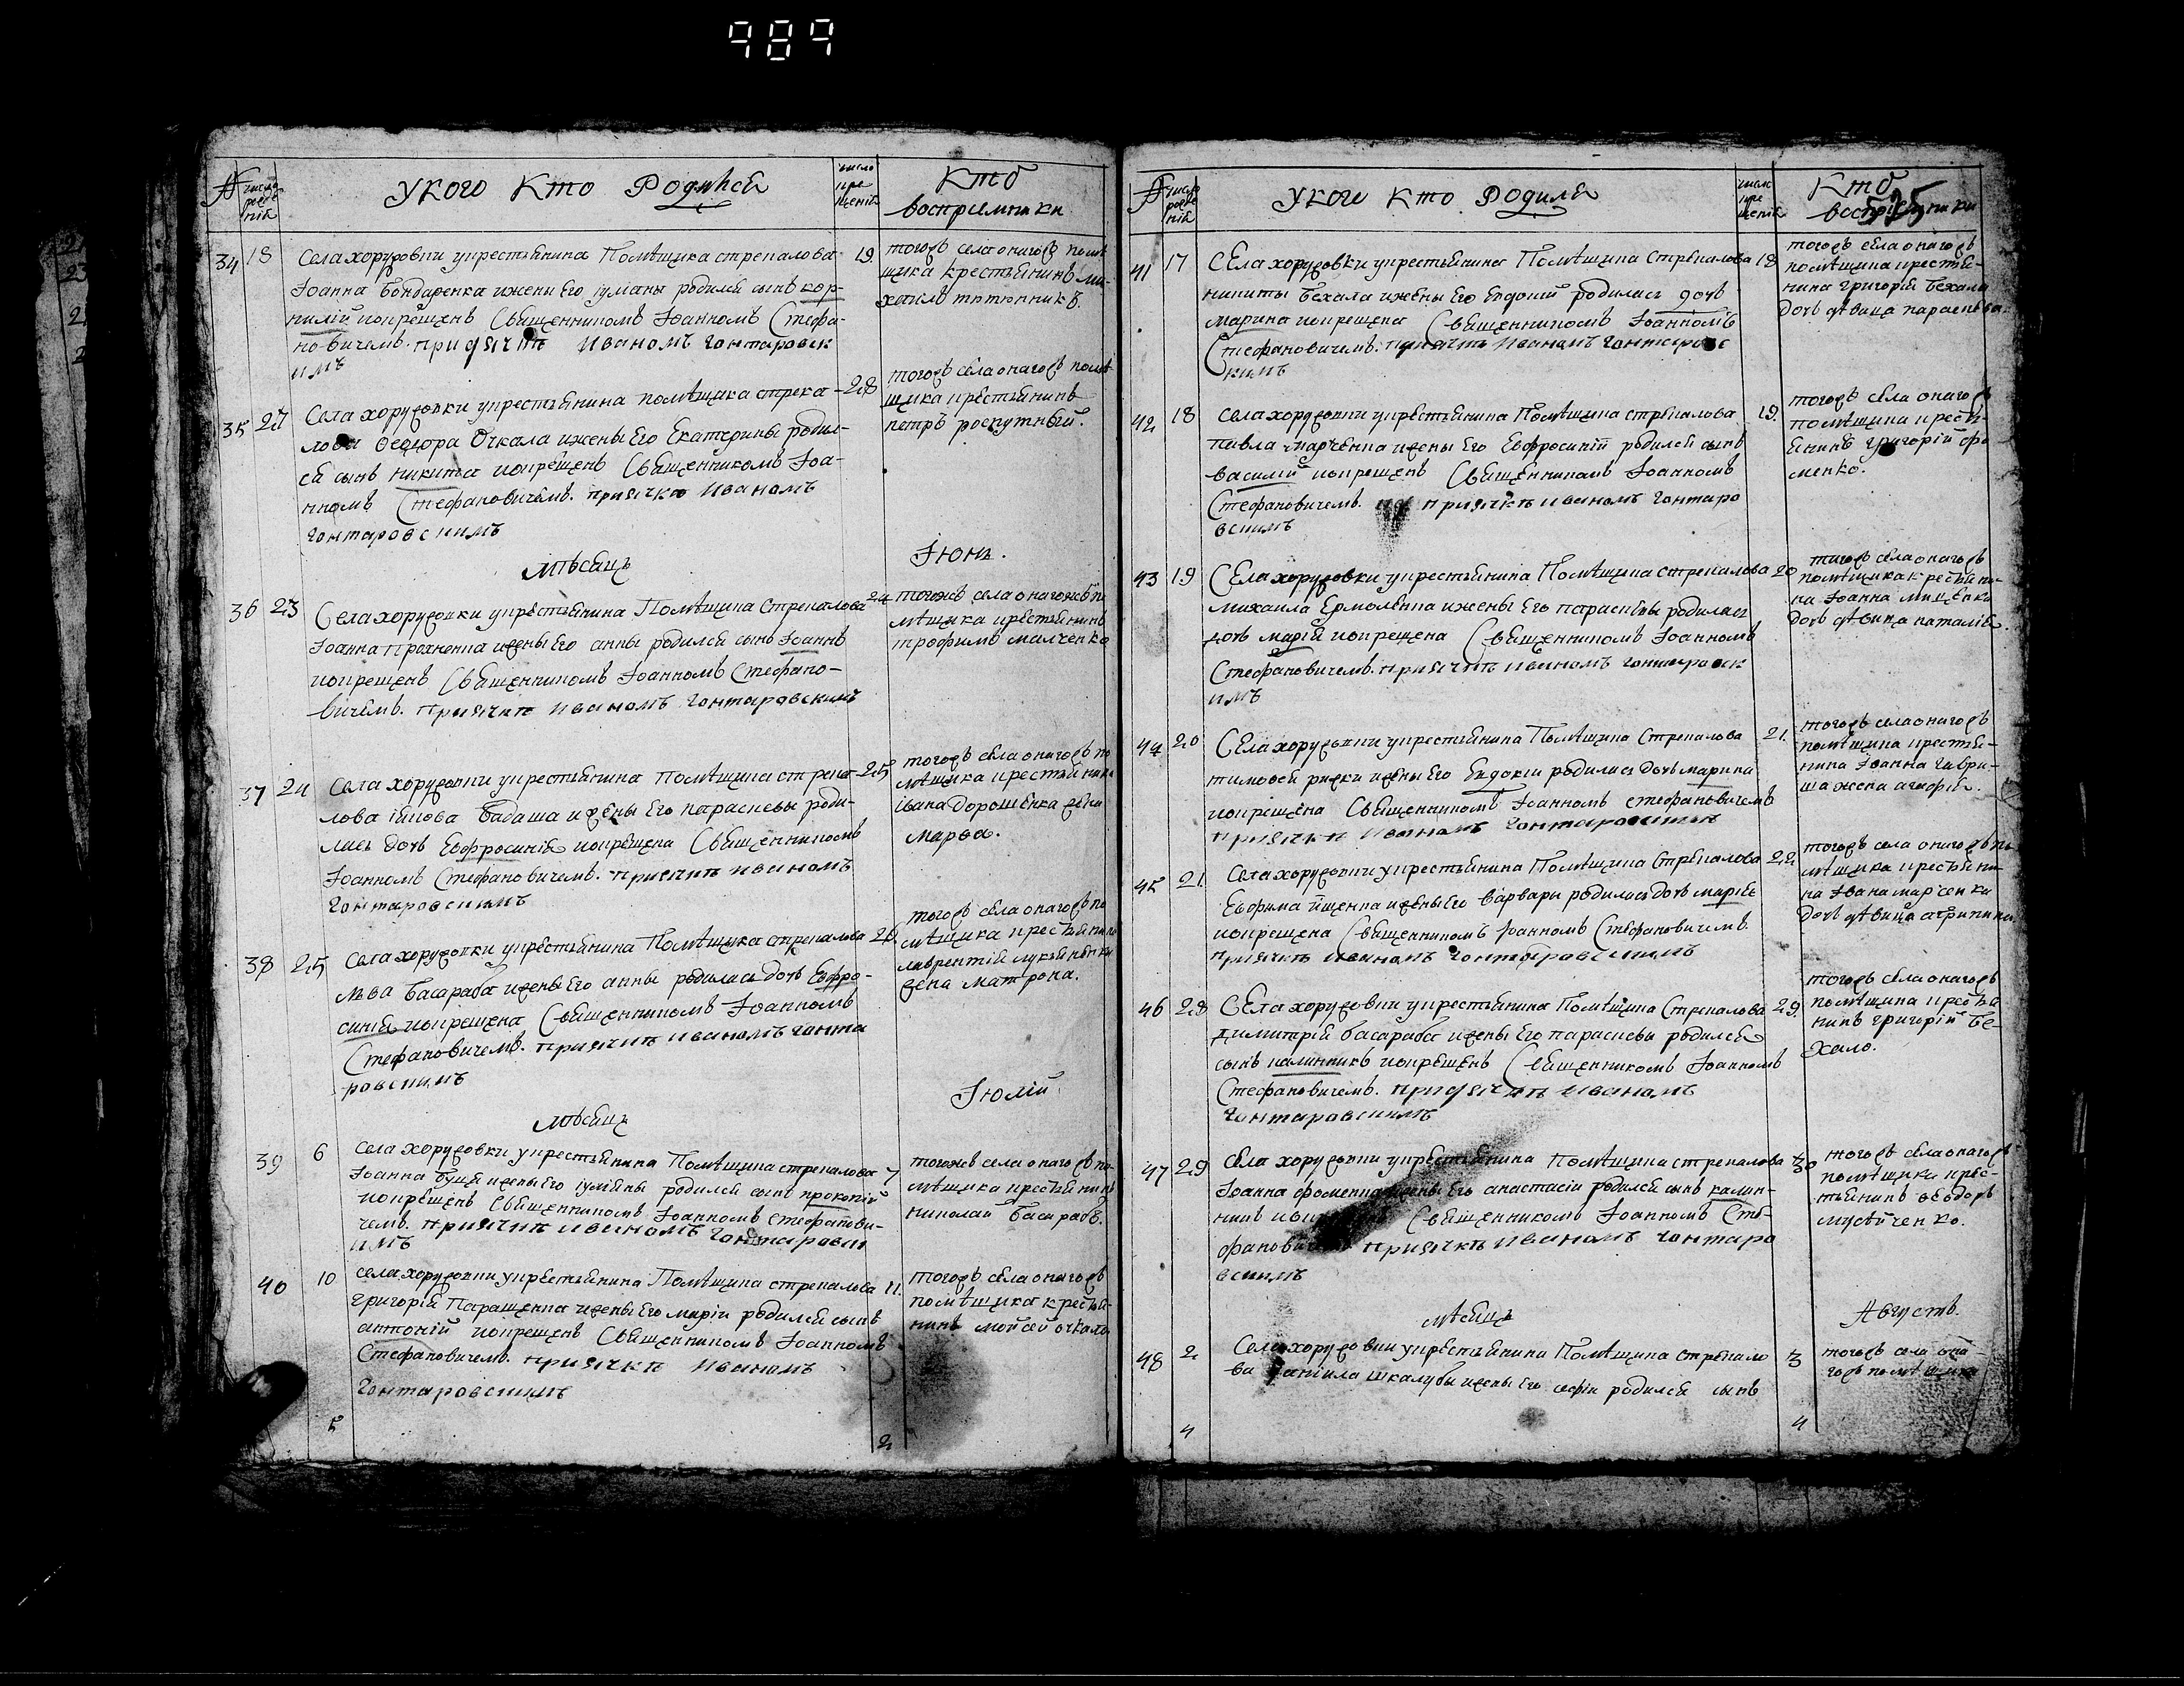 989
№ числа рожденій
У кого кто Родился
число крещеній
Кто
воспріемники
34 18 19
Села хоружовки укрестьянина Помѣщика стрекалова
Іоанна Бондаренка ижены Его іуліаны родился сынъ кор-
нилій икрещенъ Священникомъ Іоанномъ Стефа-
новичемъ. при дячкѣ Иваномъ Гонтаровск
имъ
тогожъ села онагожъ помѣ
щика крестьянинъ ми-
хаилъ
35 27 28
Села хоружовки укрестьянина помѣщика стрека-
лова Ѳеодора Очкала ижены Его Екатерины родил-
ся сынъ никита икрещенъ Священникомъ Іоа-
нномъ Стефановичемъ. при дячкѣ Иваномъ
Гонтаровскимъ
тогожъ села онагожъ помѣ
щика крестьянинъ
петръ роспутный.
Мѣсяцъ Іюнь.
36 23 24
Села хоружовки укрестьянина Помѣщика Стрекалова
Іоанна Прохненка ижены Его анны родился сынъ Іоаннъ
икрещенъ Священникомъ Іоанномъ Стефано-
вичемъ. при дячкѣ Иваномъ Гонтаровскимъ
тогожъ села онагожъ по
мѣщика крестьянинъ
трофимъ малченко
37 24 25
Села хоружовки укрестьянина Помѣщика стрека-
лова Бабаша ижены Его параскевы роди-
лась дочь Евфросинія икрещена Священникомъ
Іоанномъ Стефановичемъ. при дячкѣ иваномъ
Гонтаровскимъ
тогожъ села онагожъ по
мѣщика крестьянина
івана дорошенка жена
марѳа.
38 25 26
Села хоружовки укрестьянина Помѣщика стрекалова
Льва Басараба ижены Его анны родилась дочь Евфро-
синія икрещена Священникомъ Іоанномъ
Стефановичемъ. при дячкѣ иваномъ Гонта
ровскимъ
тогожъ села онагожъ по
мѣщика крестьянина
жена матрона.
Мѣсяцъ Іюлій
39 6 7
Села хоружовки укрестьянина Помѣщика стрекалова
Іоанна ижены Его іуліяны родился сынъ прокопій
икрещенъ Священникомъ Іоанномъ Стефанови-
чемъ. при дячкѣ иваномъ Гонтаровск
имъ
тогожъ села онагожъ по-
мѣщика крестьянинъ
николай Басарабъ.
40 10 11.
Села хоружовки укрестьянина Помѣщика стрекалова
григорія Паращенка ижены Его маріи родился сынъ
антоній икрещенъ Священникомъ Іоанномъ
Стефановичемъ. при дячкѣ Иваномъ
Гонтаровскимъ
тогожъ села онагожъ
помѣщика крестья-
нинъ мойсей очкало
5 2
№ числа рожденій
У кого кто Родился
число крещеній
Кто
воспріемники
41 17 18
Села хоружовки укрестьянина Помѣщика Стрекалова
никиты Бехала ижены Его Евдокіи родилась дочь
марина икрещена Священникомъ Іоанномъ
Стефановичемъ. при дячкѣ Иваномъ Гонтаровс
кимъ
тогожъ села онагожъ
помѣщика крестья-
нина григорія Бехала
дочь дѣвица параскева
42 18 19.
Села хоружовки укрестьянина Помѣщика стрекалова
павла марченка ижены Его Евфросиніи родился сынъ
василій икрещенъ Священникомъ Іоанномъ
Стефановичемъ. при дячкѣ иваномъ Гонтаро
вскимъ
тогожъ села онагожъ
помѣщика кресть-
янинъ григорій фо
менко.
43 19 20
Села хоружовки укрестьянина Помѣщика стрекалова
михаила Ермоленка ижены Его параскевы родилась
дочь марія икрещена Священникомъ Іоанномъ
Стефановичемъ. при дячкѣ иваномъ Гонтаровск
имъ
тогожъ села онагожъ
помѣщика крестьяни-
на Іоанна мищенка
дочь дѣвица наталія.
44 20 21.
Села хоружовки укрестьянина Помѣщика Стрекалова
тимоѳея ижены Его Евдокіи родилась дочь марина
икрещена Священникомъ Іоанномъ стефановичемъ
при дячкѣ Иваномъ Гонтаровскимъ
тогожъ села онагожъ
помѣщика крестья-
нина Іоанна гаври-
ша жена агафія.
45 21. 22
Села хоружовки укрестьянина Помѣщика Стрекалова
Евфима ижены Его варвары родилась дочь марія
икрещена Священникомъ Іоанномъ Стефановичемъ.
при дячкѣ иваномъ Гонтаровскимъ
тогожъ села онагожъ по
мѣщика крестьяни-
на Івана марченка
дочь дѣвица
46 28 29.
Села хоружовки укрестьянина Помѣщика Стрекалова
Димитрія басараба ижены Его параскевы родился
сынъ калинникъ икрещенъ Священникомъ Іоанномъ
Стефановичемъ. при дячкѣ иваномъ
Гонтаровскимъ
тогожъ села онагожъ
помѣщика крестья
нинъ григорій Бе-
хало.
47 29 30
Села хоружовки укрестьянина помѣщика стрекалова
Іоанна фоменка ижены Его анастасіи родился сынъ калин-
никъ Священникомъ Іоанномъ Сте-
фановичемъ при дячкѣ иваномъ Гонтаро
вскимъ
тогожъ села онагожъ
помѣщика крес-
тьянинъ ѳеодоръ
мусѣченко.
мѣсяцъ Августъ.
48 2 3
Села хоружовки укрестьянина Помѣщика стрекало
ва даніила шкалубы ижены Его софіи родился сынъ
тогожъ села она-
гожъ помѣщика
4 4